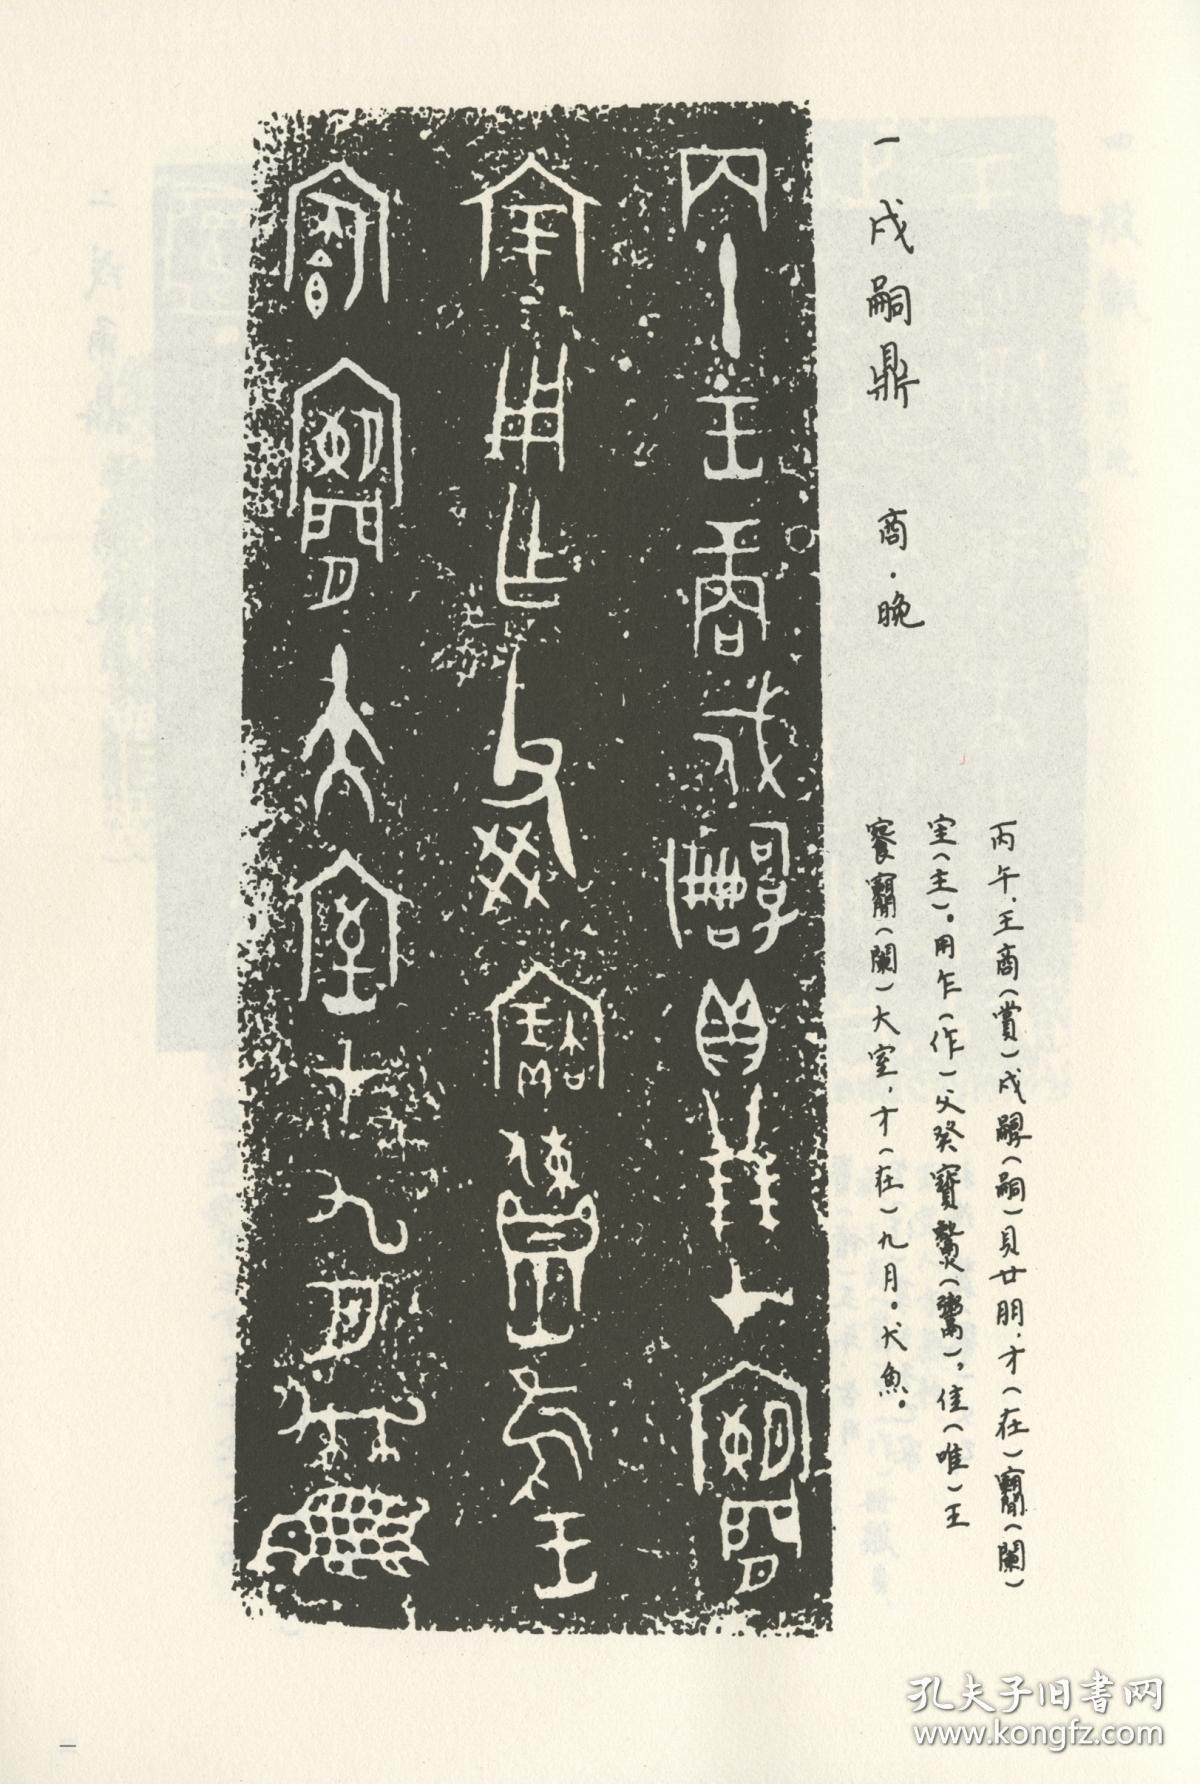 一 戍嗣鼎 商·晚
丙午，王商（賞）戍嗣（嗣）貝廿朋，才（在）（闌）
室（主）。用乍（作）父癸寶（鬻），隹（唯）王
（闌）大室，才（在）九月。犬魚。
一
孔夫子旧書网
www.kongfz.com